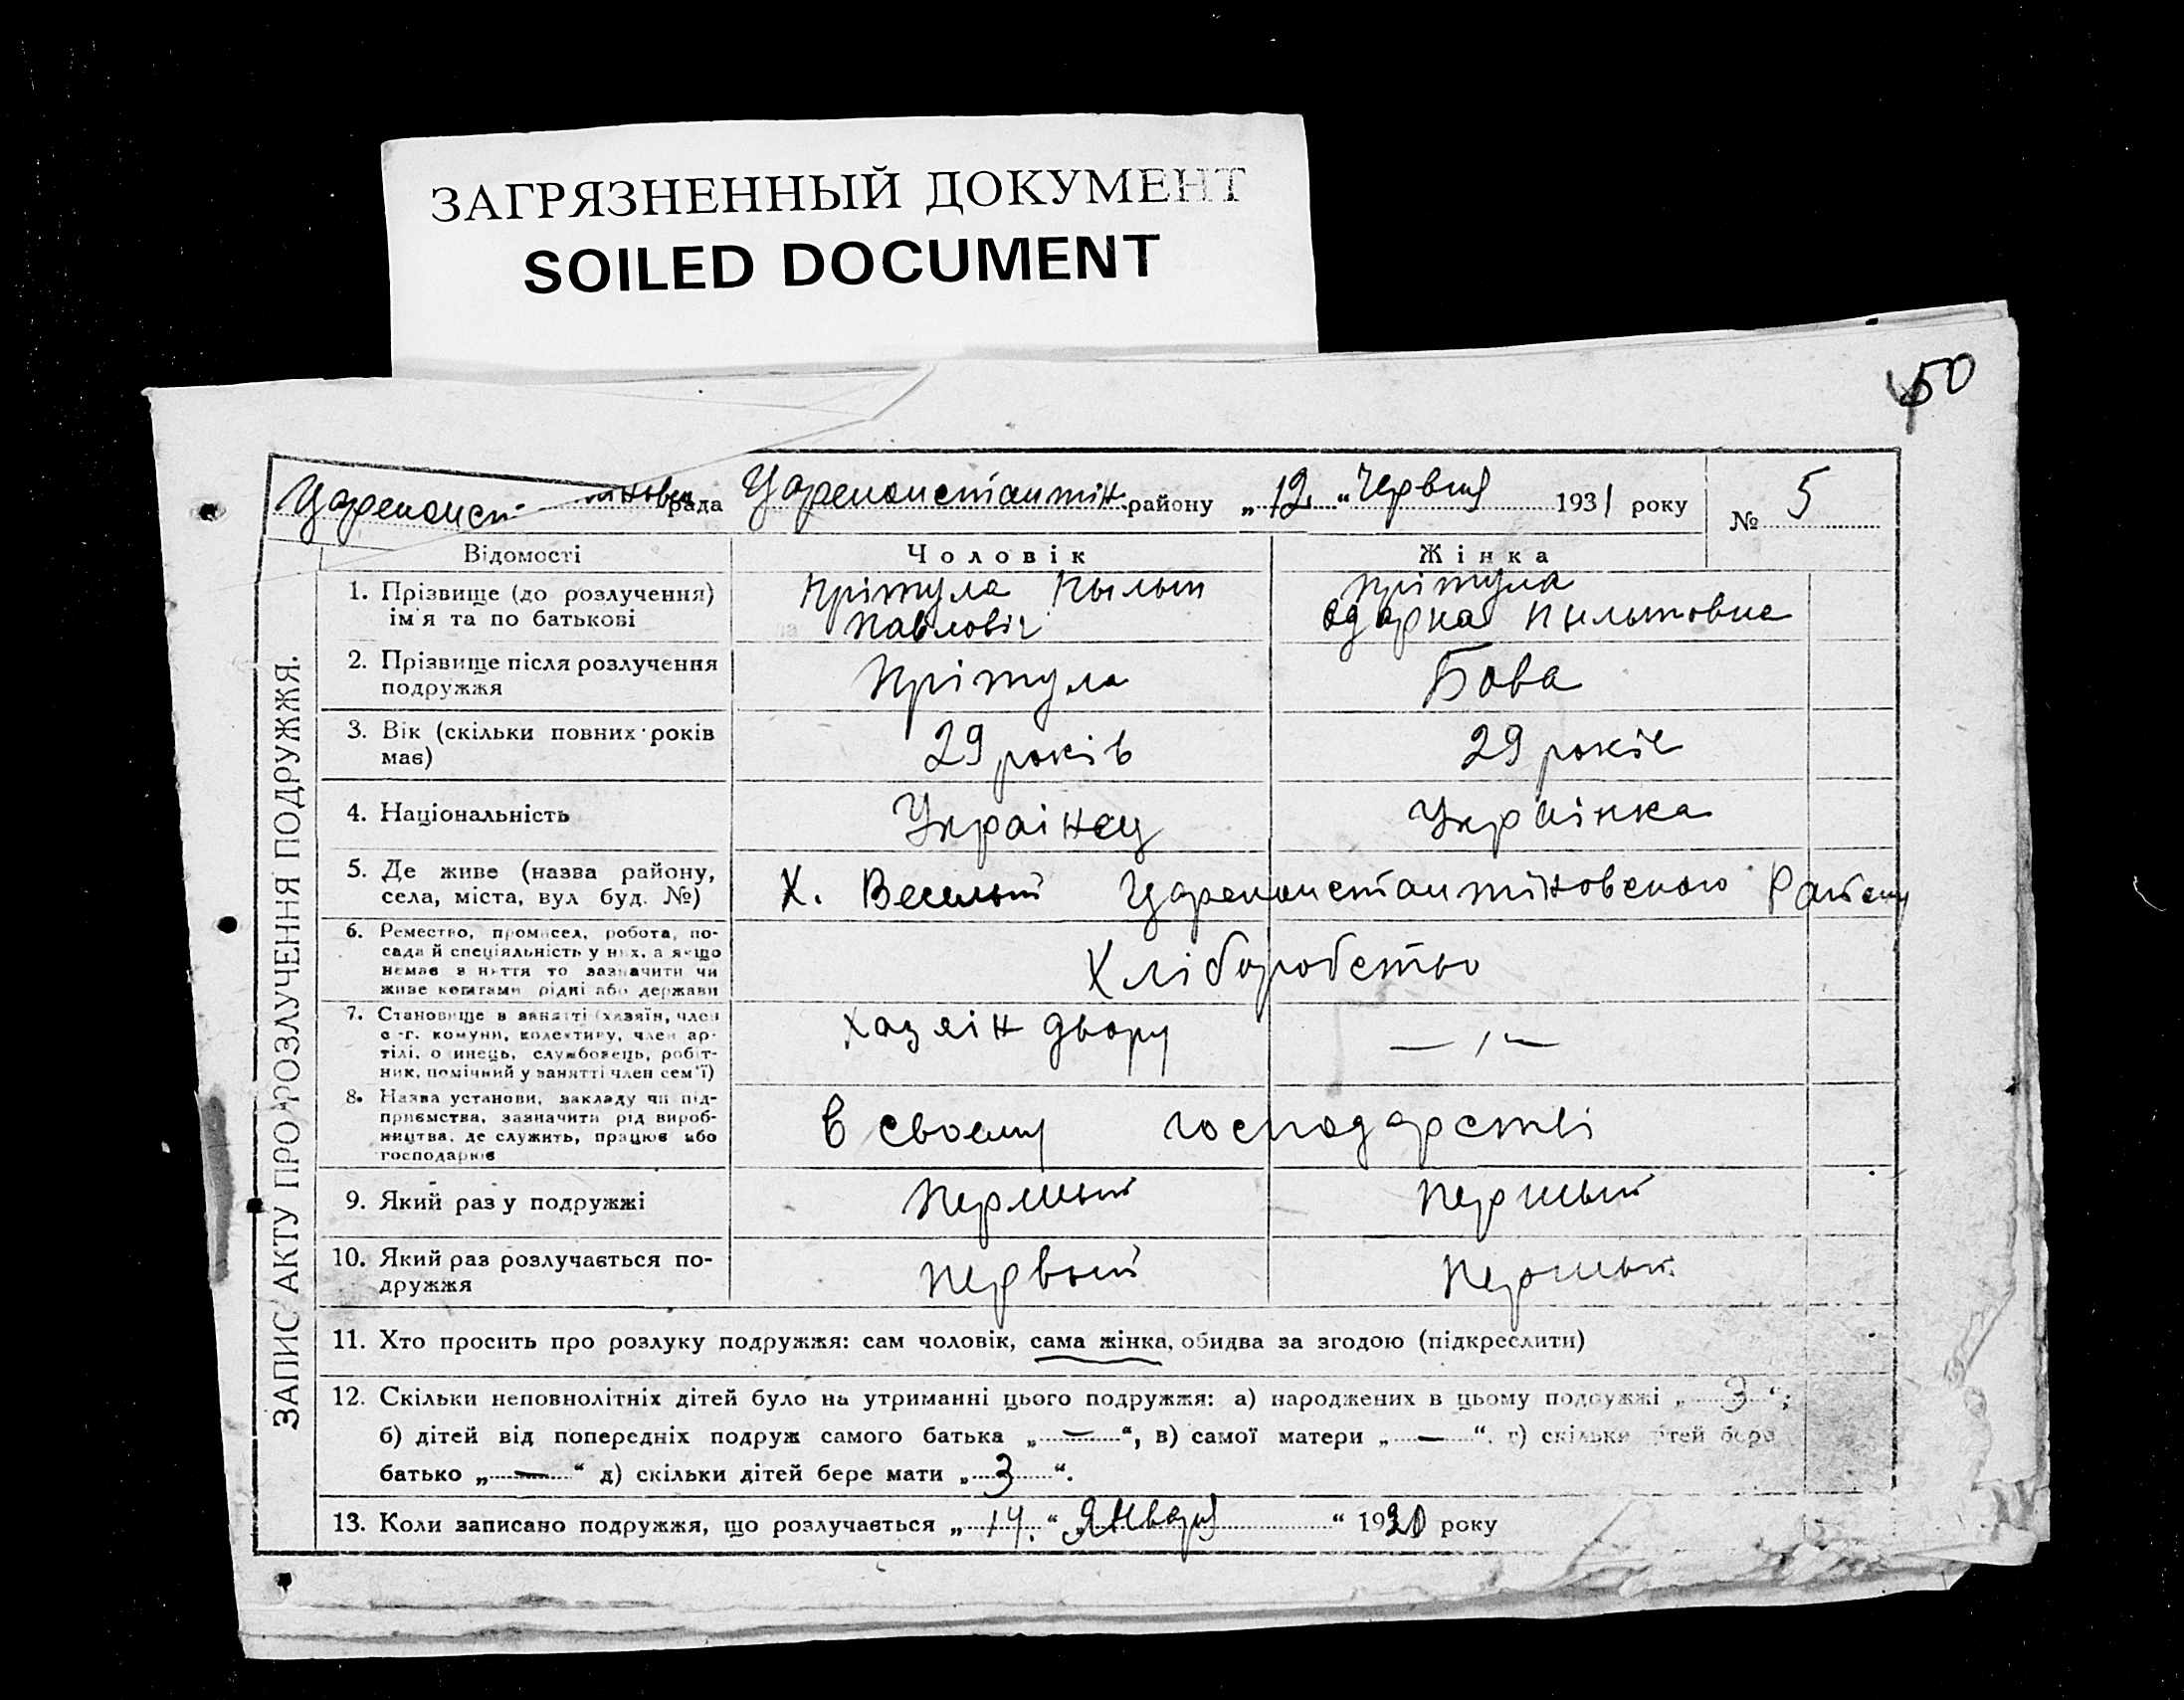 ЗАГРЯЗНЕННЫЙ ДОКУМЕНТ
SOILED DOCUMENT
50
Цареконст- рада Цареконстантін. району „12“ Червня 1931 року № 5
ЗАПИС АКТУ ПРО РОЗЛУЧЕННЯ ПОДРУЖЖЯ.
Відомості Чоловік Жінка
1. Прізвище (до розлучення) Прітула Пылып Прітула
ім'я та по батькові Павловіч Одарка Пылыповна
2. Прізвище після розлучення Прітула Бова
подружжя
3. Вік (скільки повних років 29 років 29 років
має)
4. Національність Українец Українка
5. Де живе (назва району, Х. Веселый Цареконстантіновского Району
села, міста, вул буд. №)
6. Ремество, промисел, робота, по-
сада й спеціяльність у них, а якщо Хліборобство
немає з няття то зазначити чи
живе коштами рідні або держави
7. Становище в занятті (хазяїн, член Хазяін двору — ,, —
с.-г. комуни, колективу, член ар-
тілі, о инець, службовець, робіт-
ник, помічний у занятті член сем'ї)
8. Назва установи, закладу чи під-
приємства, зазначити рід вироб- В своему господарстві
ництва, де служить, працює або
господарює
9. Який раз у подружжі Першый Першый
10. Який раз розлучається по- Первый Першый
дружжя
11. Хто просить про розлуку подружжя: сам чоловік, сама жінка, обидва за згодою (підкреслити)
12. Скільки неповнолітніх дітей було на утриманні цього подружжя: а) народжених в цьому подружжі „3“;
б) дітей від попередніх подруж самого батька „—“, в) самої матери „—“. г) скільки дітей бере
батько „—“ д) скільки дітей бере мати „3“.
13. Коли записано подружжя, що розлучається „14.“ „Января“ 1920 року